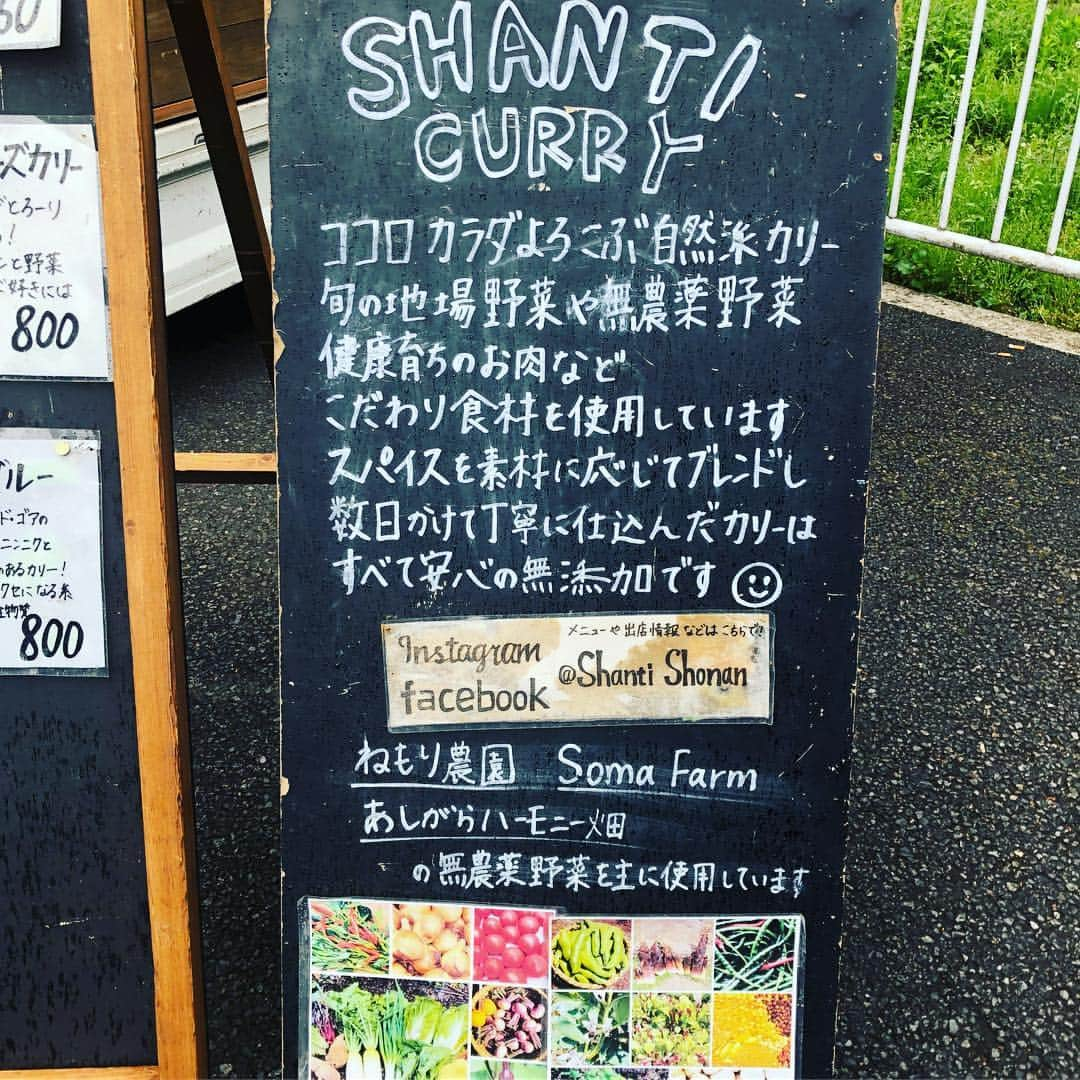 60
ーズカリー
とろーり
！
と野菜
好きには
800
ブルー
ド・ゴアの
ニンニクと
のあるカリー！
クセになる系
800
SHANTI
CURRY
ココロ カラダよろこぶ自然派カリー
旬の地場野菜や無農薬野菜
健康育ちのお肉など
こだわり食材を使用しています
スパイスを素材に応じてブレンドし
数日かけて丁寧に仕込んだカリーは
すべて安心の無添加です
メニューや出店情報などはこちらで!
Instagram
facebook
@Shanti Shonan
ねもり農園 Soma Farm
あしがらハーモニー畑
の無農薬野菜を主に使用しています